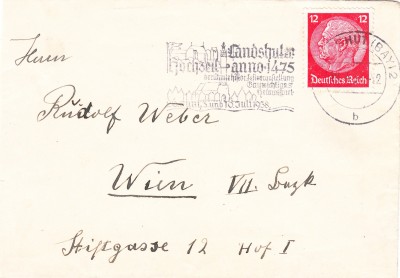 Herrn
Landshuter
Hochzeit
anno 1475
12 12
Deutsches Reich
(BAY) 2
b
Juli 1938
Rudolf Weber
Wien VII. Bezk
Stiftgasse 12 Hof I